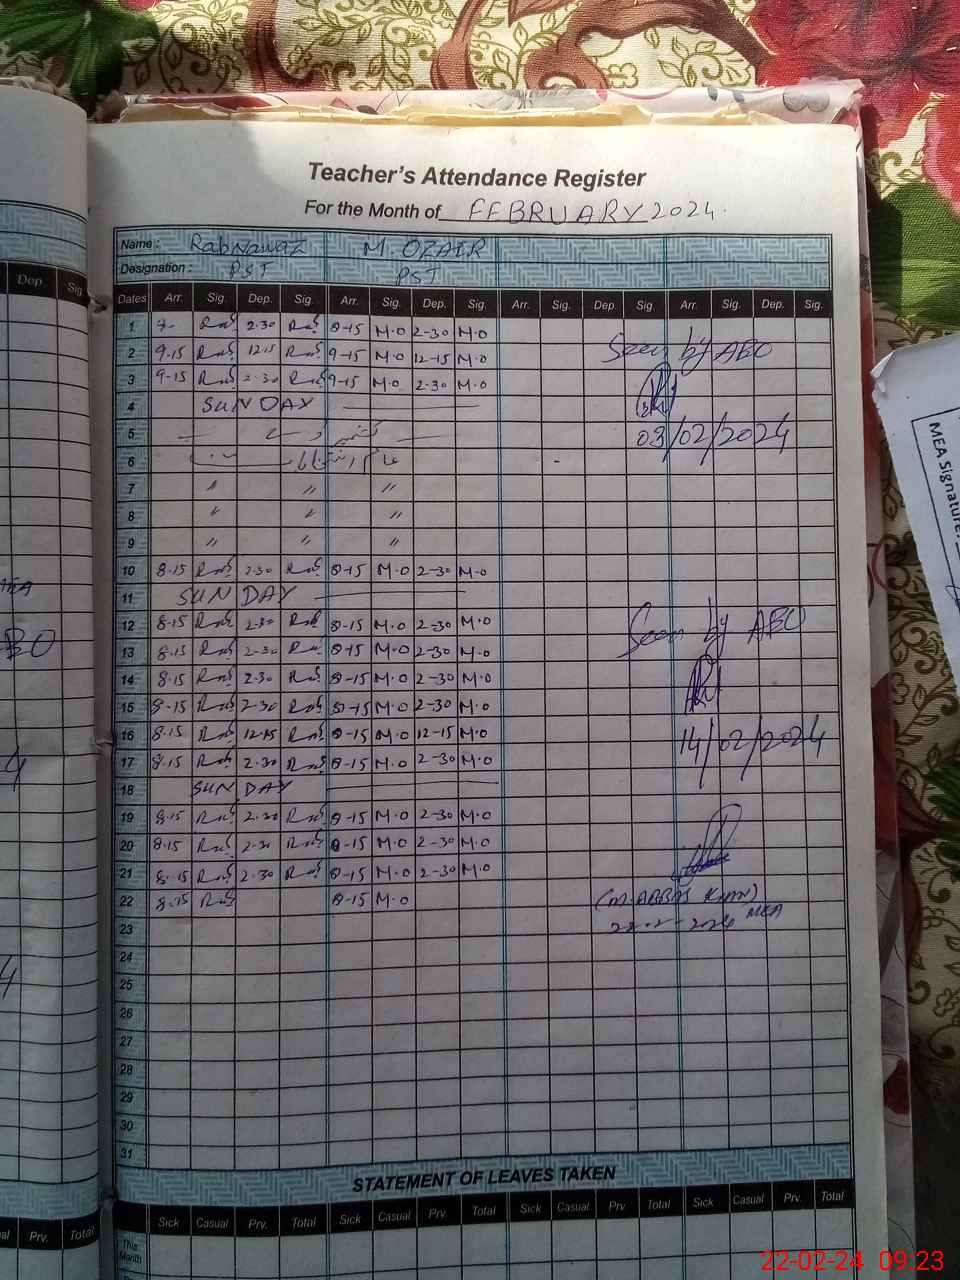 Teacher's Attendance Register
For the Month of FEBRUARY 2024.
Name : RabNawaz M. OZAIR
Designation : PST PST
Dates Arr. Sig. Dep. Sig. Arr. Sig. Dep. Sig. Arr. Sig. Dep. Sig. Arr. Sig. Dep. Sig.
1 2-30 8-15 M.O 2-30 M.O
2 9-15 12-15 9-15 M.O 12-15 M.O
Seen by ABO
3 9-15 2-30 9-15 M.O 2-30 M.O
4 SUNDAY
5
03/02/2024
6
7 " " "
8 " " "
9 " " "
10 8-15 2-30 8-15 M.O 2-30 M.O
11 SUNDAY
12 8-15 2-30 8-15 M.O 2-30 M.O
Seen by ABO
13 8-15 2-30 8-15 M.O 2-30 M.O
14 8-15 2-30 8-15 M.O 2-30 M.O
15 8-15 2-30 8-15 M.O 2-30 M.O
16 8-15 12-15 8-15 M.O 12-15 M.O
14/02/2024
17 8-15 2-30 8-15 M.O 2-30 M.O
18 SUNDAY
19 8-15 2-30 8-15 M.O 2-30 M.O
20 8-15 2-30 8-15 M.O 2-30 M.O
21 8-15 2-30 8-15 M.O 2-30 M.O
22 8-15 8-15 M.O
(M. ABBAS KHAN)
MEA
23
24
25
26
27
28
29
30
31
STATEMENT OF LEAVES TAKEN
Sick Casual Prv. Total Sick Casual Prv. Total Sick Casual Prv. Total Sick Casual Prv. Total
This Month
Dep. Sig.
Prv. Total
MEA Signature:
22-02-24 09:23